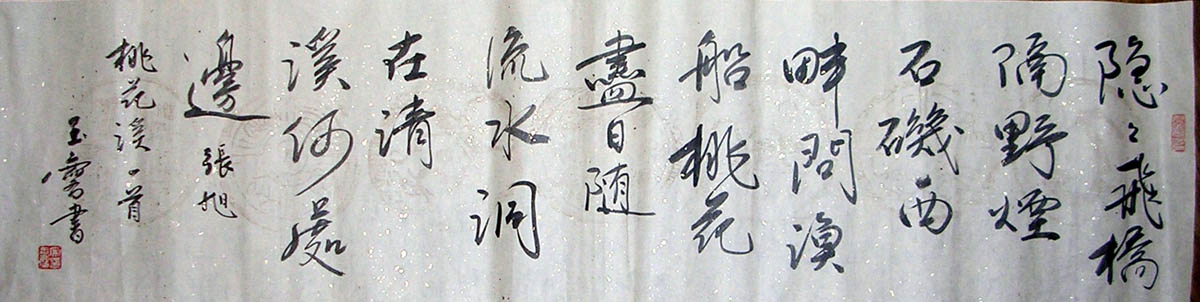 隐〻飛橋
隔野煙
石磯西
畔問漁
船桃花
盡日随
流水洞
在清
溪何處
邊 張旭
桃花溪一首
玉書